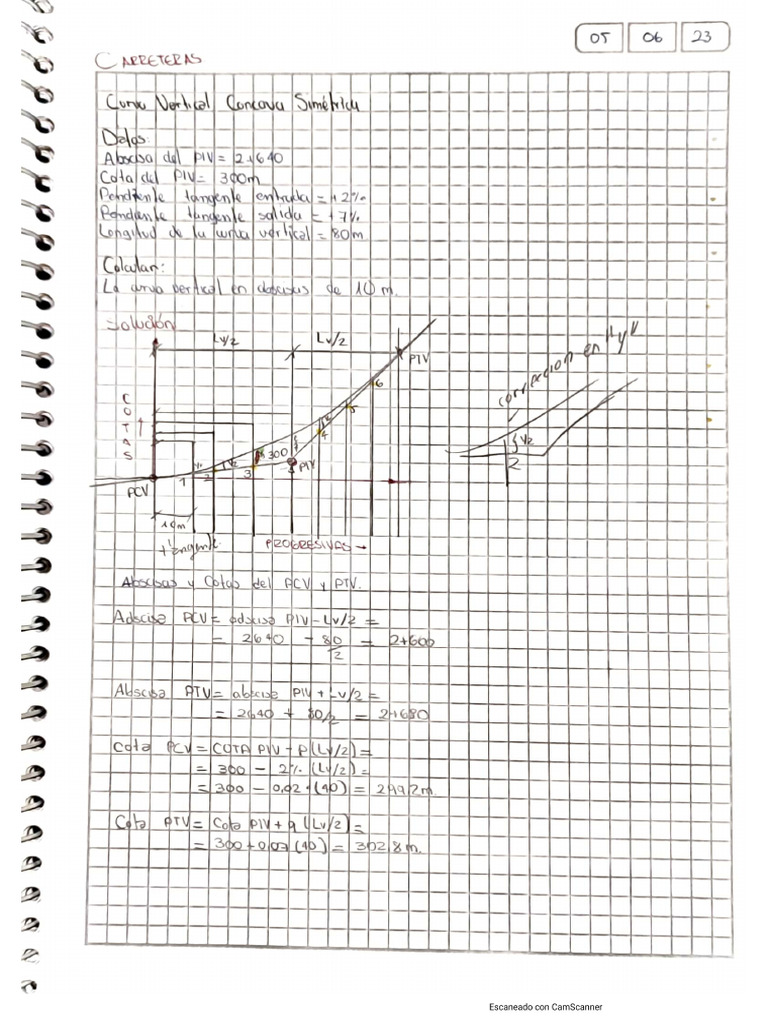 05 06 23
CARRETERAS
Curva Vertical Concava Simétrica
Datos:
Abscisa del PIV = 2+640
Cota del PIV = 300m
Pendiente tangente entrada = +2%
Pendiente tangente salida = +7%
Longitud de la curva vertical = 80m
Calcular:
La curva vertical en abscisas de 10 m.
Solución
Lv/2 Lv/2
PTV
corrección en "y"
COTAS
6
5
4
300
PIV
3
2
1
PCV
y2
2
10m
PROGRESIVAS
Abscisas y Cotas del PCV y PTV.
Adscisa PCV = adscisa PIV - Lv/2 =
= 2640 - 80/2 = 2+600
Abscisa PTV = abscisa PIV + Lv/2 =
= 2640 + 80/2 = 2+680
Cota PCV = COTA PIV - P(Lv/2) =
= 300 - 2% (Lv/2) =
= 300 - 0,02 * (40) = 299,2m.
Cota PTV = Cota PIV + q (Lv/2) =
= 300 + 0,07 (40) = 302,8m.
Escaneado con CamScanner